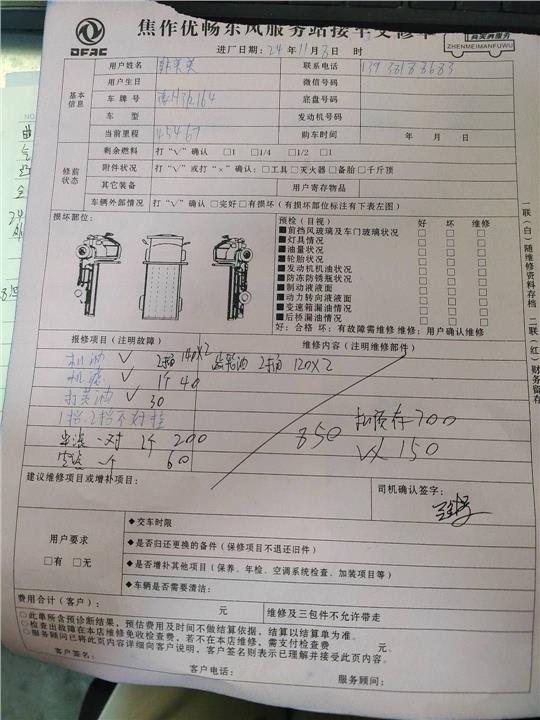 焦作优畅东风服务站接车交修单
DFAC
真英满服务
ZHENMEIMANFUWU
进厂日期：24年11月8日 时
基本信息
用户姓名
联系电话 13938188683
用户生日
微信号码
车牌号
底盘号码
车型
发动机号码
当前里程 45467
购车时间 年 月 日
修前状态
剩余燃料 打“√”确认 □1 □1/4 □1/2 □1
附件状况 打“√”或打“×”确认：□工具□灭火器□备胎□千斤顶
其它装备
用户寄存物品
车辆外部情况 打“√”确认□完好□有损坏（有损坏部位标注有下表左图）
损坏部位：
预检（目视） 好 坏 维修
■前挡风玻璃及车门玻璃状况 □ □ □
■灯具情况 □ □ □
■油量状况 □ □ □
■轮胎状况 □ □ □
■发动机机油状况 □ □ □
■防冻防锈瓶状况 □ □ □
■制动液液面 □ □ □
■动力转向液液面 □ □ □
■变速箱漏油情况 □ □ □
■后桥漏油情况 □ □ □
好：合格 坏：有故障需维修 维修：用户确认维修
报修项目（注明故障）
维修内容（注明维修部件）
机油 √ 2桶 140×2
齿轮油 2桶 120×2
机滤 √ 1个 40
打黄油 √ 30
1挡、2挡不好挂
一对 200
850
扣预存700
收150
空滤一个 60
建议维修项目或增补项目：
司机确认签字：
用户要求
□有 □无
◆交车时限
◆是否归还更换的备件（保修项目不退还旧件）
◆是否增补其他项目（保养、年检、空调系统检查、加装项目等）
◆车辆是否需要清洁：
费用合计（客户）： 元
维修及三包件不允许带走
○此单所含预诊断结果，预估费用及时间不做结算依据，结算以结算单为准。
○检查出故障在本店维修免收检查费，若不在本店维修，需支付检查费 元。
○服务顾问已将此页内容详细向客户说明，客户签名则表示已理解并接受此页内容。
客户签名：
客户电话：
服务顾问：
一联（白）随维修资料存档 二联（红）财务留存